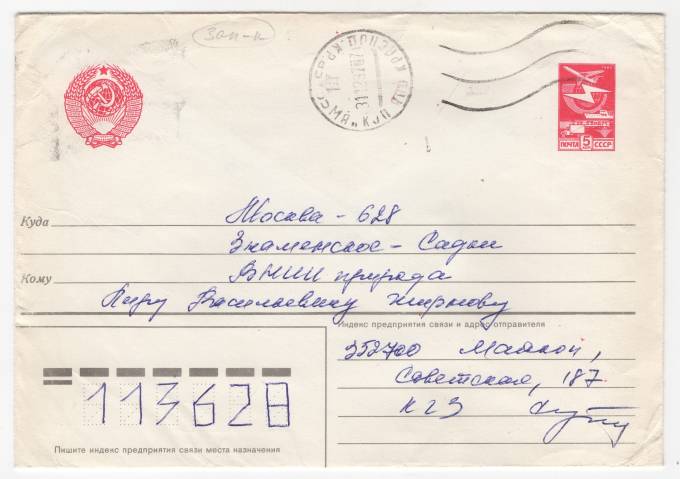 Зап-к
ПОЧТА 5 СССР
Куда
Москва - 628
Знаменское - Садки
Кому
ВНИИ природа
Киру Васильевичу Жирнову
Индекс предприятия связи и адрес отправителя
352700 Майкоп,
Советская, 187
к 23
113628
Пишите индекс предприятия связи места назначения